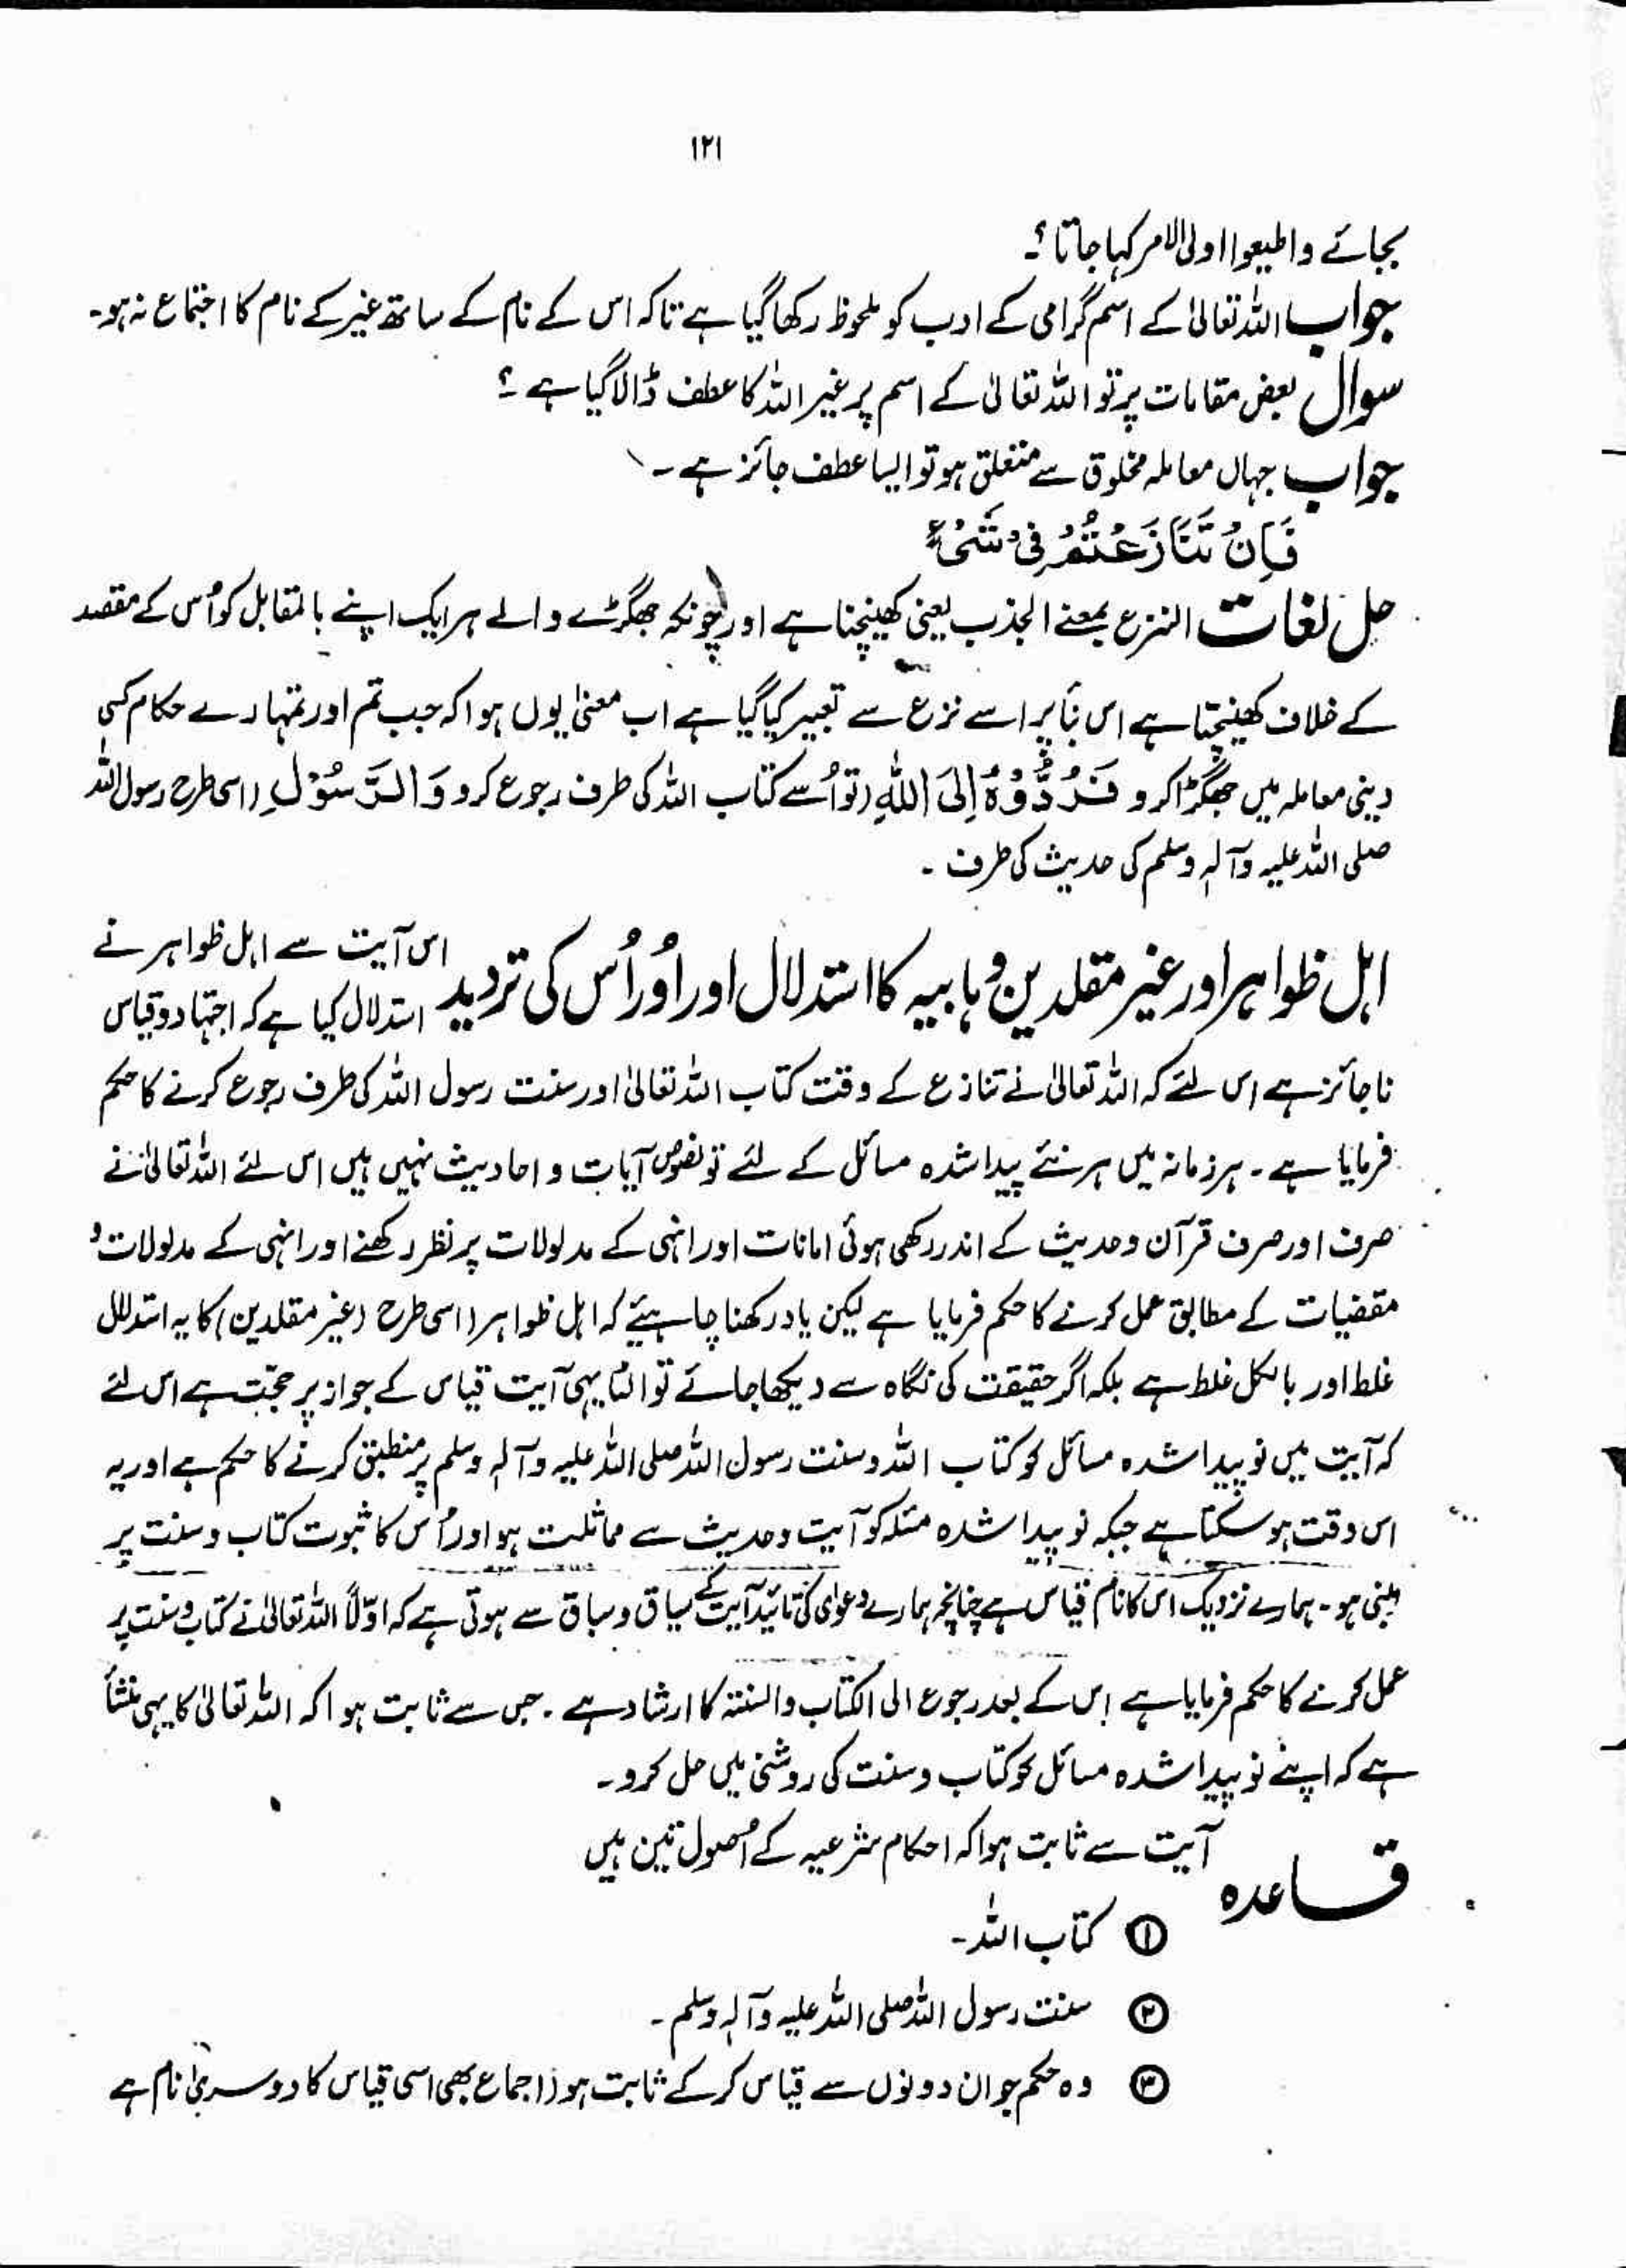 ۱۲۱
بجائے واطیعوا اولی الامر کہا جاتا؟۔
جواب اللہ تعالیٰ کے اسم گرامی کے ادب کو ملحوظ رکھا گیا ہے تاکہ اس کے نام کے ساتھ غیر کے نام کا اجتماع نہ ہو۔
سوال بعض مقامات پر تو اللہ تعالیٰ کے اسم پر غیر اللہ کا عطف ڈالا گیا ہے ؟
جواب جہاں معاملہ مخلوق سے متعلق ہو تو ایسا عطف جائز ہے ۔
فَاِنْ تَنَازَعْتُمْ فِیْ شَیْءٍ
حل لغات النزع بمعنے الجذب یعنی کھینچنا ہے اور چونکہ جھگڑے والے ہر ایک اپنے بالمقابل کو اُس کے مقصد
کے خلاف کھینچتا ہے اس بنأ پر اسے نزع سے تعبیر کیا گیا ہے اب معنیٰ یوں ہوا کہ جب تم اور تمہارے حکام کسی
دینی معاملہ میں جھگڑا کرو فَرُدُّوْہُ اِلَی اللّٰہِ (تو اُسے کتاب اللہ کی طرف رجوع کرو وَالرَّسُوْلِ (اسی طرح رسول اللہ
صلی اللہ علیہ وآلہٖ وسلم کی حدیث کی طرف ۔
اہل ظواہر اور غیر مقلدین وہابیہ کا استدلال اور اُور اُس کی تردید اس آیت سے اہل ظواہر نے
استدلال کیا ہے کہ اجتہاد و قیاس
ناجائز ہے اس لئے کہ اللہ تعالیٰ نے تنازع کے وقت کتاب اللہ تعالیٰ اور سنت رسول اللہ کی طرف رجوع کرنے کا حکم
فرمایا ہے ۔ ہر زمانہ میں ہر نئے پیدا شدہ مسائل کے لئے تو نصوص آیات و احادیث نہیں ہیں اس لئے اللہ تعالیٰ نے
صرف اور صرف قرآن و حدیث کے اندر رکھی ہوئی امانات اور انہی کے مدلولات پر نظر رکھنے اور انہی کے مدلولات و
مقضیات کے مطابق عمل کرنے کا حکم فرمایا ہے لیکن یاد رکھنا چاہیئے کہ اہل ظواہر (اسی طرح (غیر مقلدین) کا یہ استدلال
غلط اور بالکل غلط ہے بلکہ اگر حقیقت کی نگاہ سے دیکھا جائے تو الٹا یہی آیت قیاس کے جواز پر حجّت ہے اس لئے
کہ آیت میں نو پیدا شدہ مسائل کو کتاب اللہ و سنت رسول اللہ صلی اللہ علیہ وآلہٖ وسلم پر منطبق کرنے کا حکم ہے اور یہ
اس وقت ہو سکتا ہے جبکہ نو پیدا شدہ مسئلہ کو آیت و حدیث سے مماثلت ہو اور اُس کا ثبوت کتاب و سنت پر
مبنی ہو ۔ ہمارے نزدیک اس کا نام قیاس ہے چنانچہ ہمارے دعوٰی کی تائید آیت کے سیاق و سباق سے ہوتی ہے کہ اوّلاً اللہ تعالیٰ نے کتاب و سنت پر
عمل کرنے کا حکم فرمایا ہے اس کے بعد رجوع الی الکتاب والسنتہ کا ارشاد ہے ۔ جس سے ثابت ہوا کہ اللہ تعالیٰ کا یہی منشأ
ہے کہ اپنے نو پیدا شدہ مسائل کو کتاب و سنت کی روشنی میں حل کرو ۔
قاعدہ آیت سے ثابت ہوا کہ احکام شرعیہ کے اصول تین ہیں
① کتاب اللہ ۔
② سنت رسول اللہ صلی اللہ علیہ وآلہٖ وسلم ۔
③ وہ حکم جو ان دونوں سے قیاس کرکے ثابت ہو (اجماع بھی اسی قیاس کا دوسریٰ نام ہے